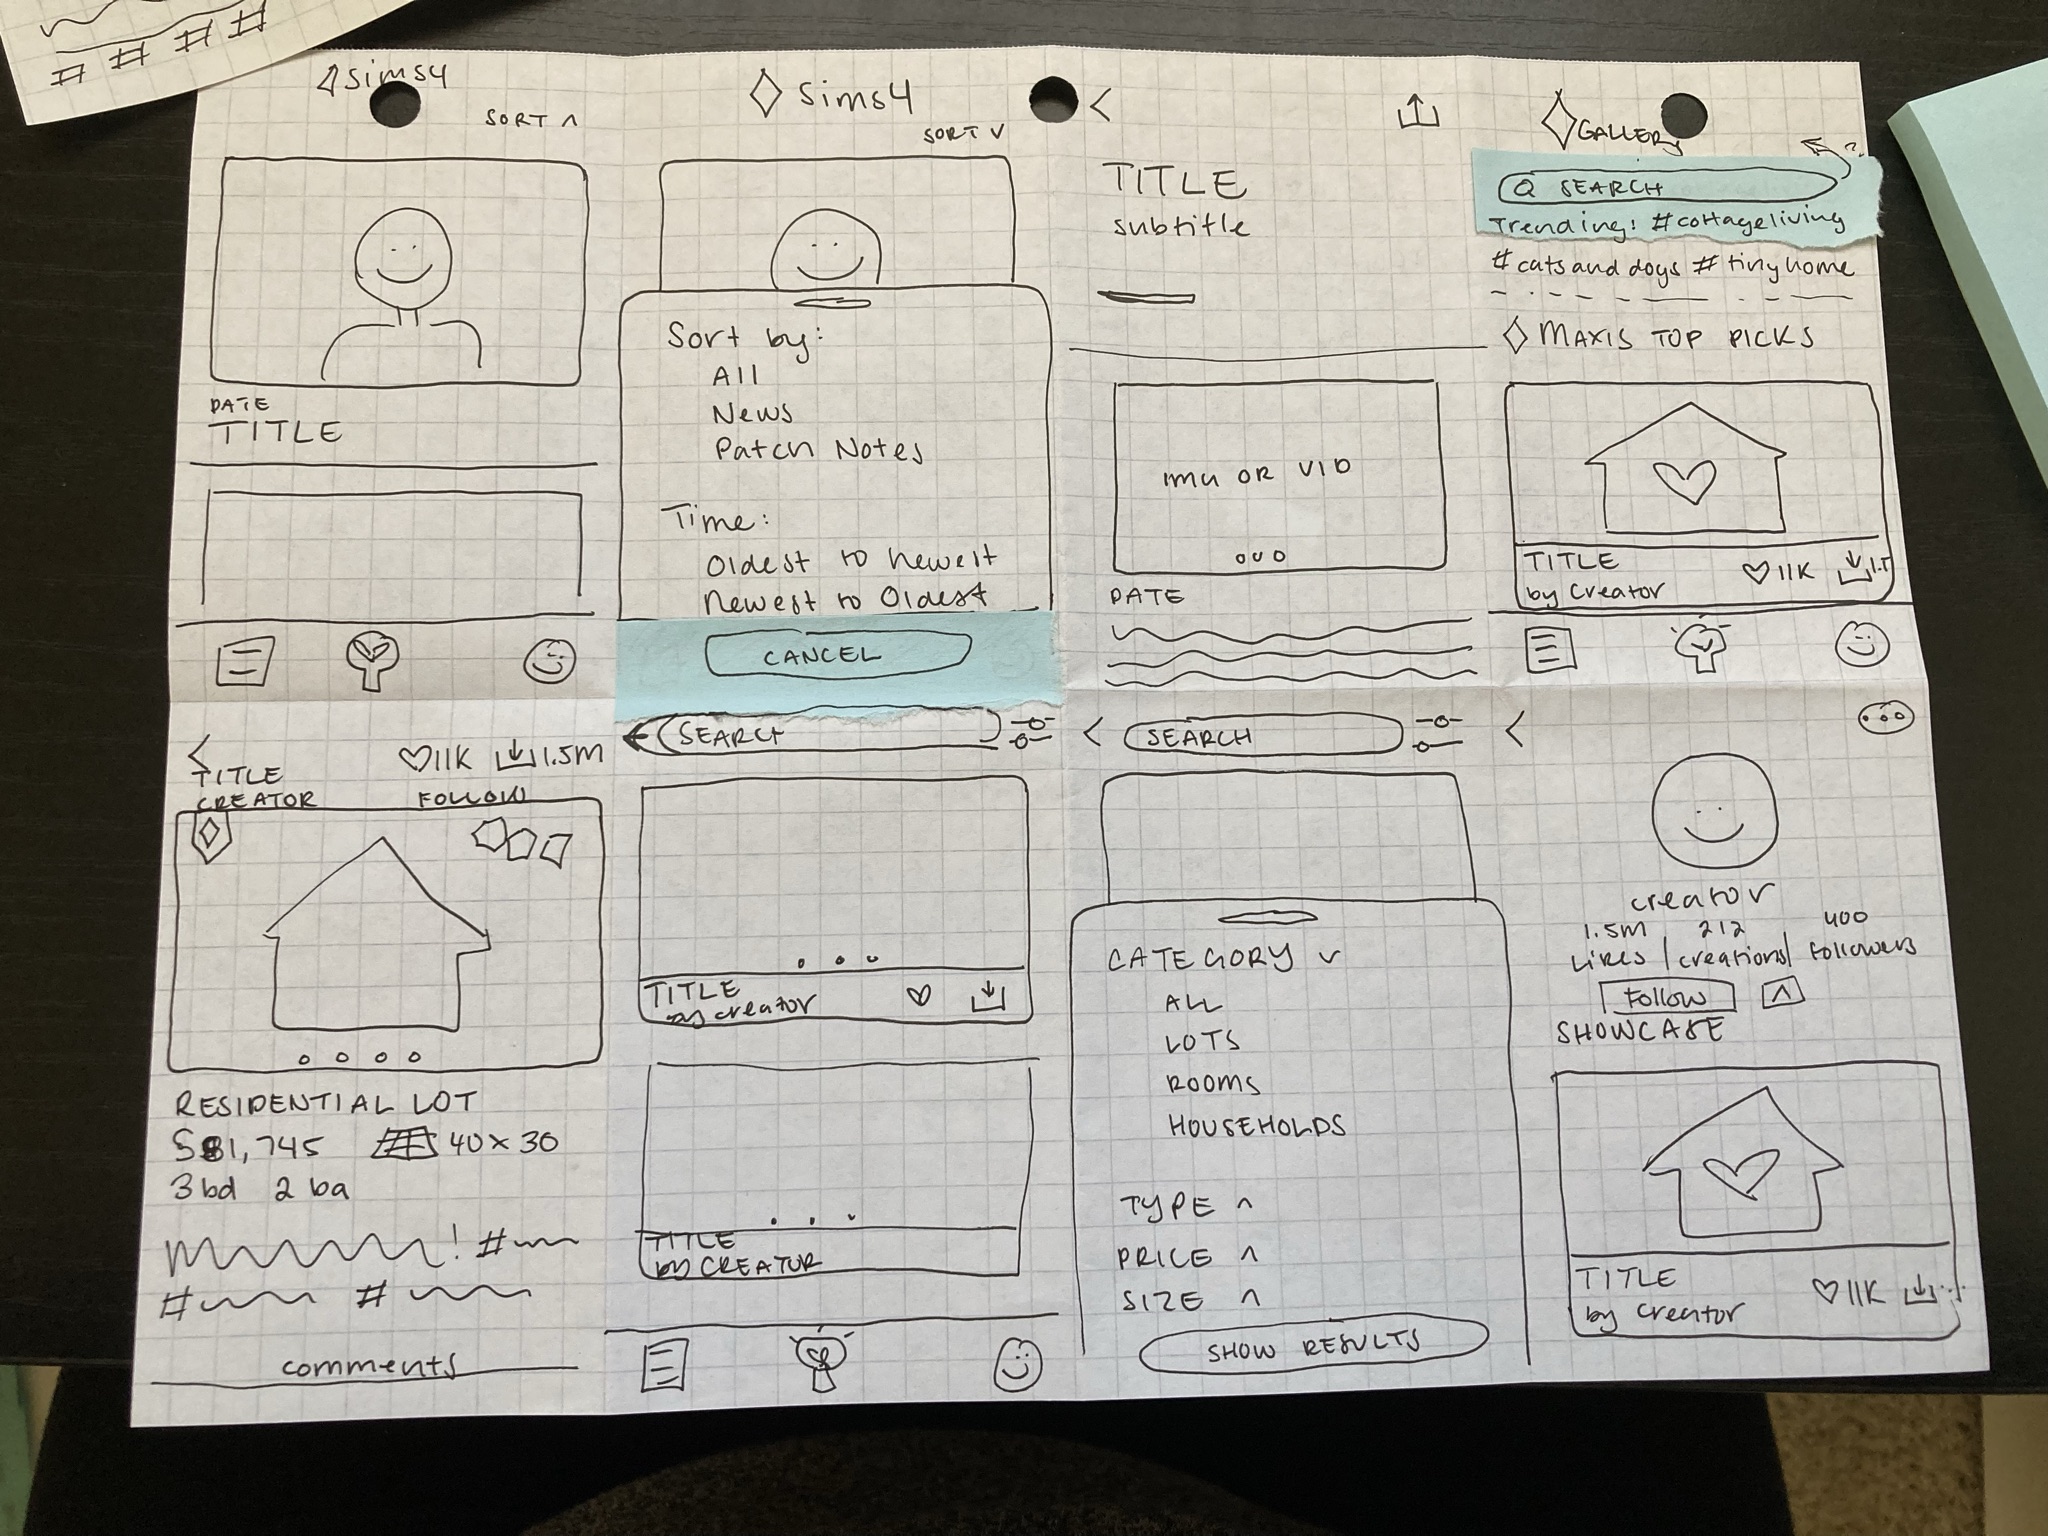 # # # #
Sims4
SORT ^
DATE
TITLE
Sims4
SORT v
Sort by:
All
News
Patch Notes
Time:
Oldest to Newest
Newest to Oldest
CANCEL
<
TITLE
subtitle
IMG OR VID
DATE
GALLERY
?
SEARCH
Trending: #cottageliving
#catsanddogs #tinyhome
MAXIS TOP PICKS
TITLE
11K
by Creator
<
11K
1.5M
TITLE
CREATOR
FOLLOW
RESIDENTIAL LOT
§81,745
40x30
3bd 2ba
! #
# #
comments
SEARCH
TITLE
by creator
TITLE
by CREATOR
<
SEARCH
CATEGORY v
ALL
LOTS
ROOMS
HOUSEHOLDS
TYPE ^
PRICE ^
SIZE ^
SHOW RESULTS
<
creator
1.5m 212 400
Likes | creations | Followers
Follow ^
SHOWCASE
TITLE
11K
by creator